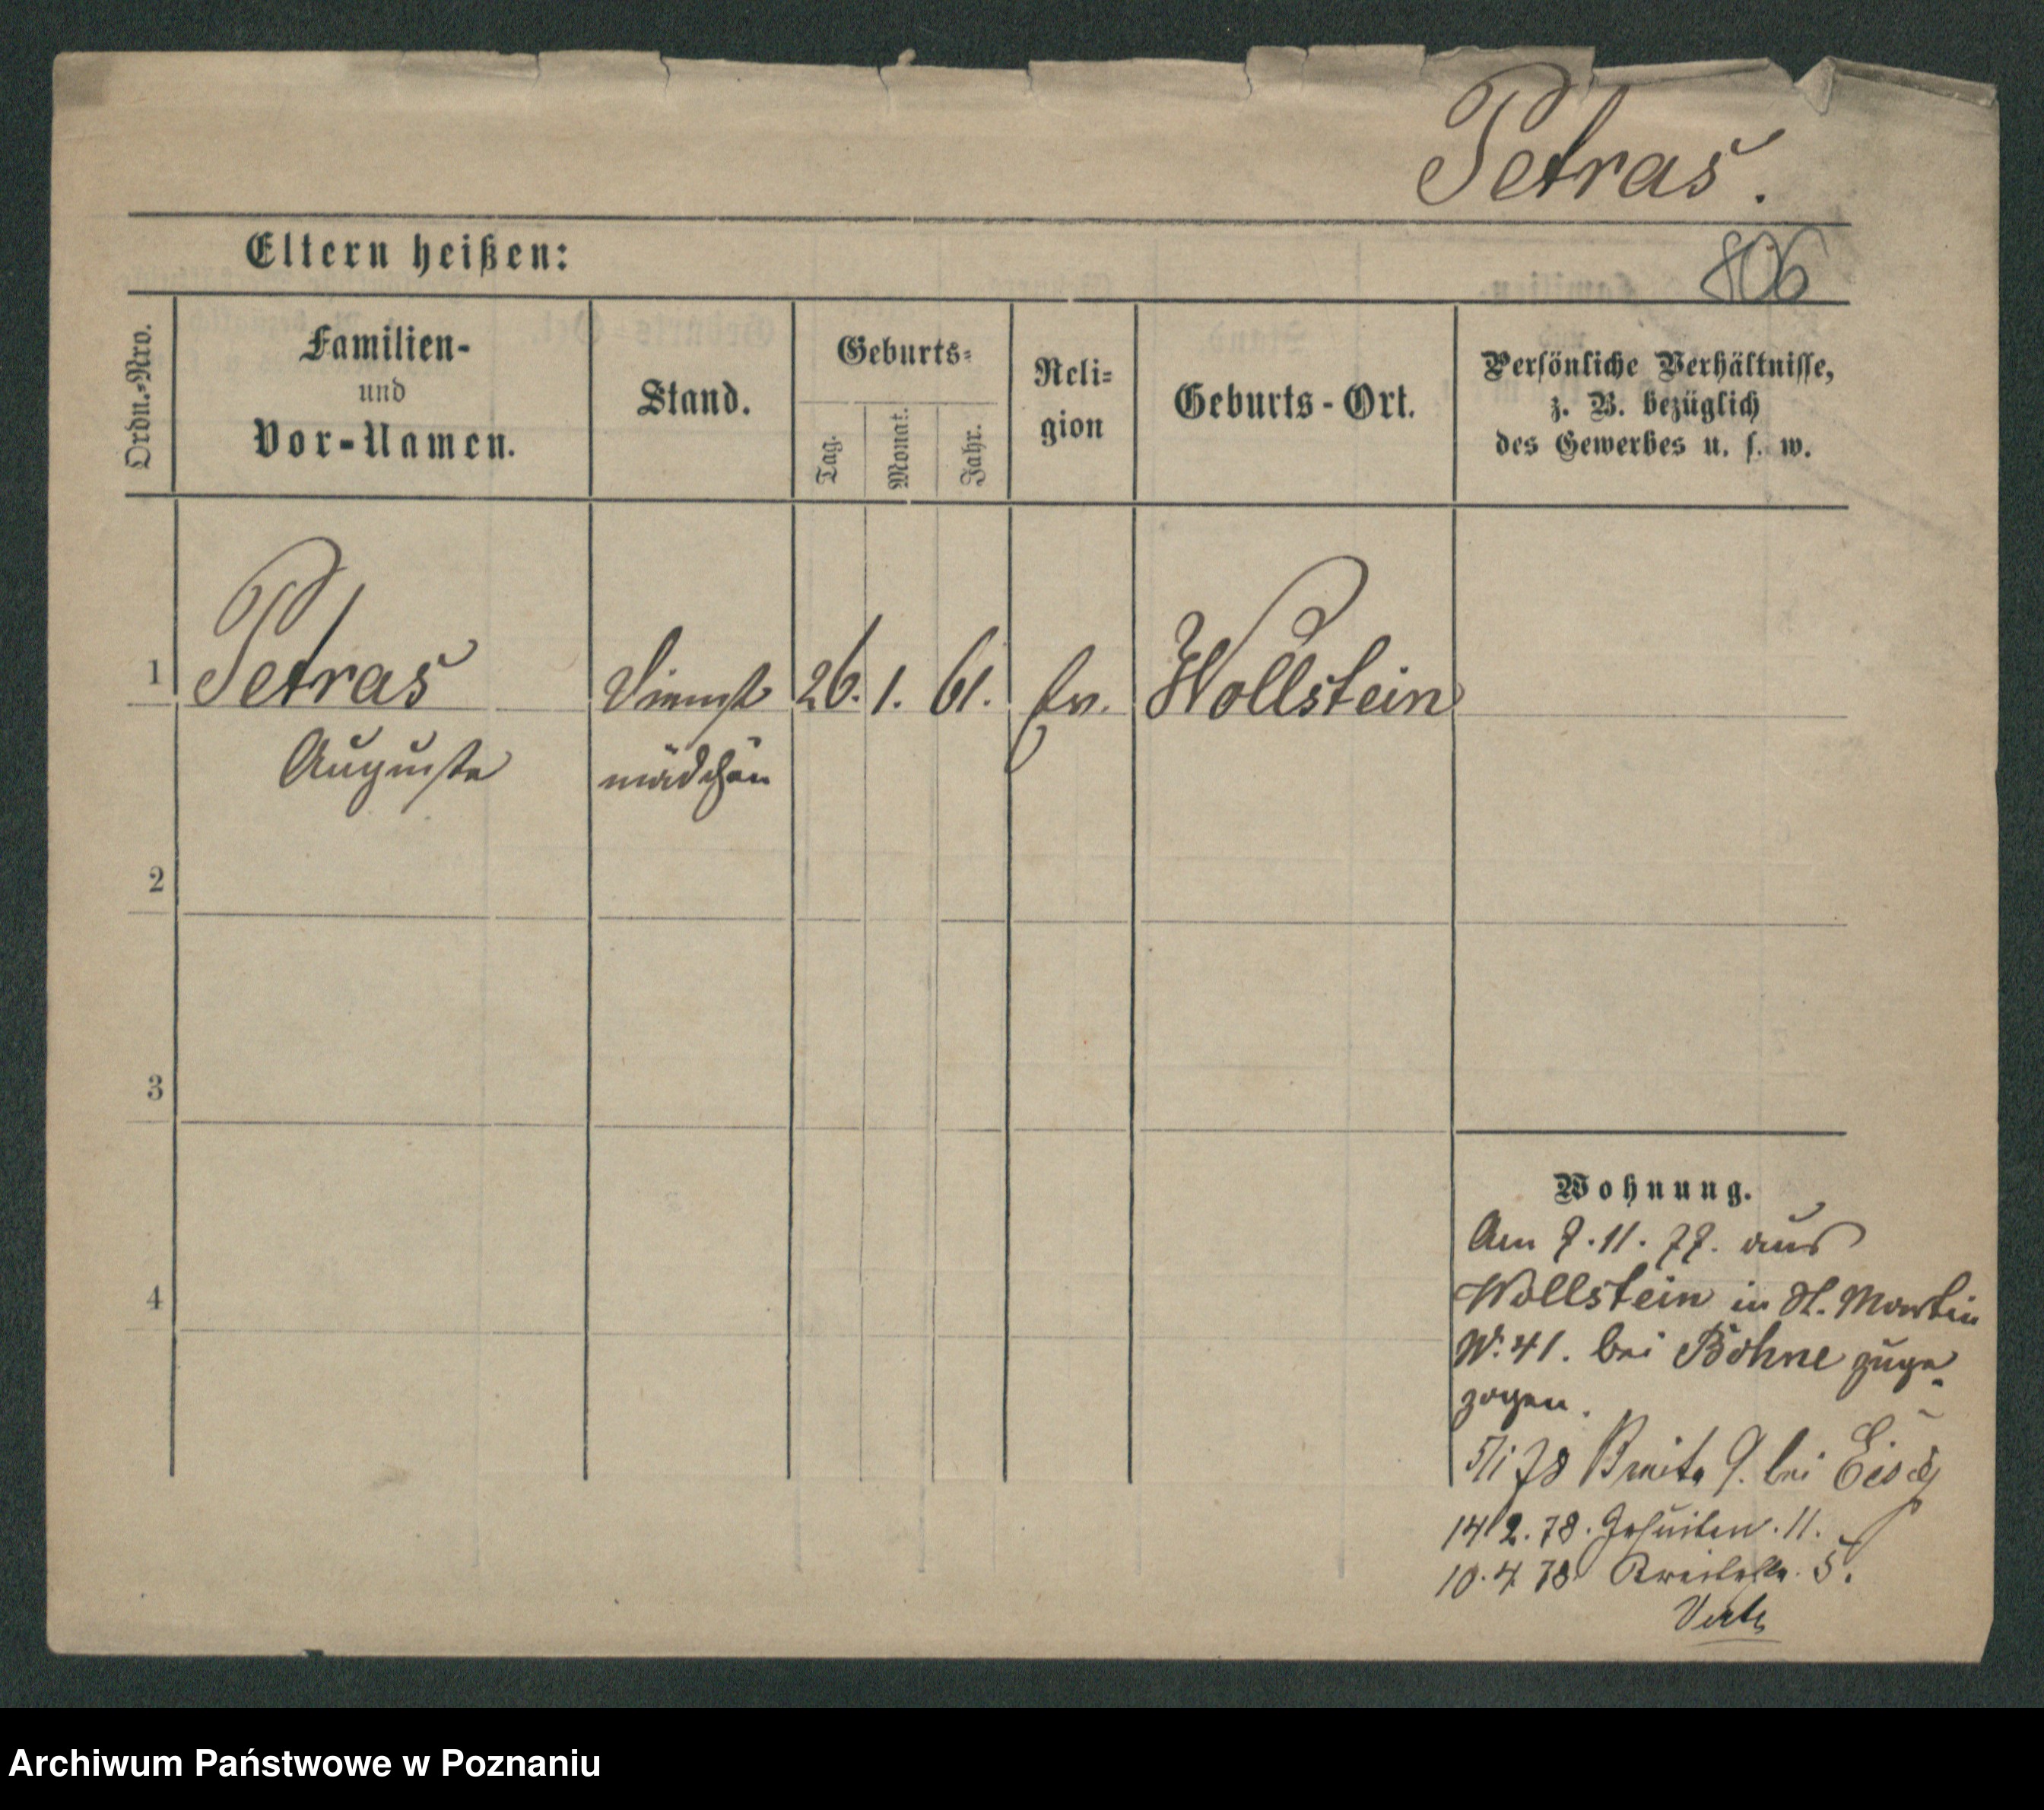 Petras.
Eltern heißen:
806
Ordn.-Nro.
Familien-
und
Vor-Namen.
Stand.
Geburts-
Tag.
Monat.
Jahr.
Reli-
gion
Geburts-Ort.
Persönliche Verhältnisse,
z. B. bezüglich
des Gewerbes u. s. w.
1 Petras Dienst 26. 1. 61. ev. Wollstein
Auguste mädchen
2
3
4
Wohnung.
Am 7. 11. 77. aus
Wollstein in St. Martin
N. 41. bei Böhne zuge-
zogen.
5/1 78 Breite 9. bei
14/2. 78. Jesuiten. 11.
10. 4 78 Breitestr. 5.
Archiwum Państwowe w Poznaniu